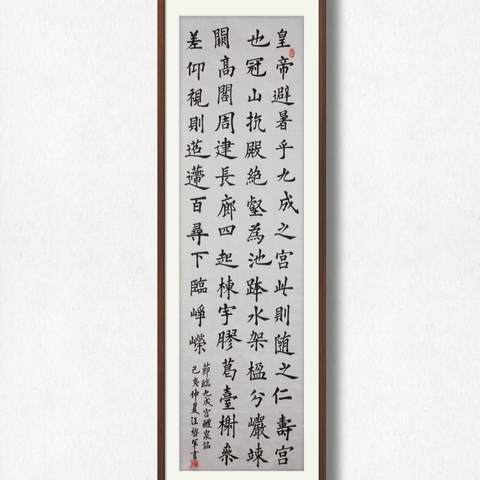 皇帝避暑乎九成之宮此則随之仁壽宮
也冠山抗殿絶壑為池跨水架楹分巖竦
闕高閣周建長廊四起棟宇膠葛臺榭參
差仰視則迢遰百尋下臨崢嶸
節臨九成宮醴泉銘
己亥仲夏汪軍書